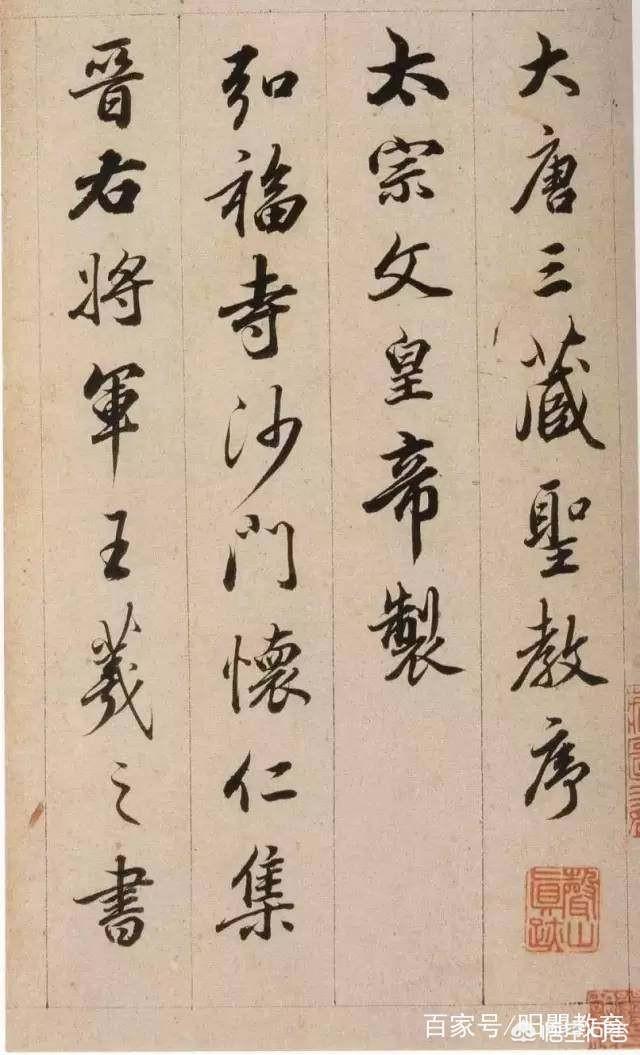 大唐三藏聖教序
太宗文皇帝製
弘福寺沙門懷仁集
晉右將軍王羲之書
百家号/明闇教育
悟空问答